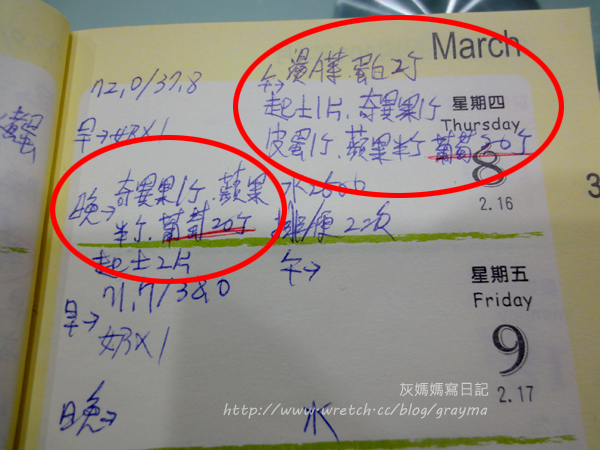 March
星期四
Thursday
8
2.16
72.0/37.8
早→奶X1
午→燙A菜.蛋白2个
起士1片、奇異果1个
皮蛋1个、蘋果半个 葡萄30个
晚→奇異果1个、蘋果
半个、葡萄20个
起士2片
水2600
排便2次
星期五
Friday
9
2.17
71.7/38.0
早→
奶X1
午→
晚→
水
3
灰媽媽寫日記
http://www.wretch.cc/blog/grayma